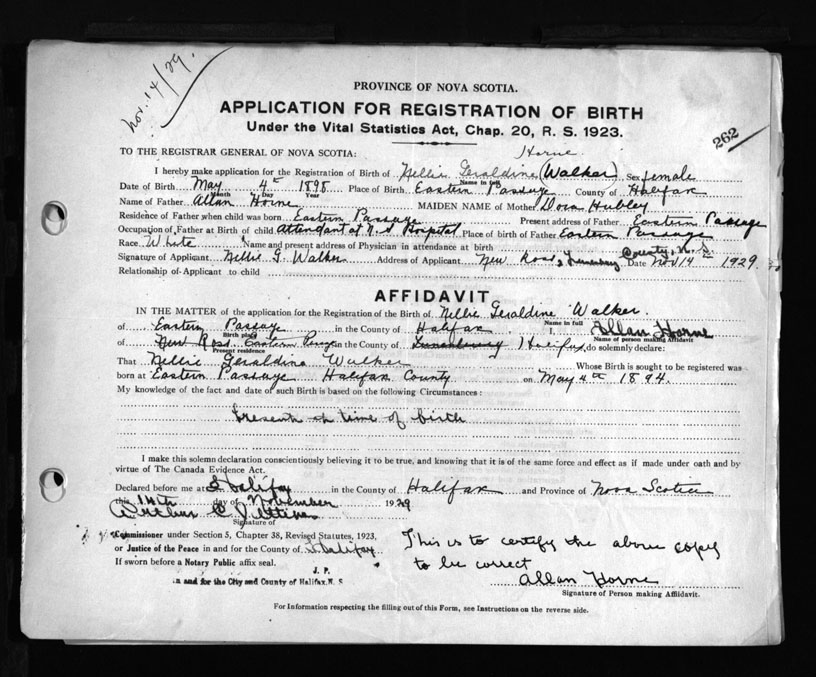 Nov. 14/29
PROVINCE OF NOVA SCOTIA.
APPLICATION FOR REGISTRATION OF BIRTH
Under the Vital Statistics Act, Chap. 20, R. S. 1923.
262
TO THE REGISTRAR GENERAL OF NOVA SCOTIA:
Horne
I hereby make application for the Registration of Birth of Nellie Geraldine (Walker) Sex female
Name in full
Date of Birth May 4th 1898 Place of Birth Eastern Passage County of Halifax
Month Day Year
Name of Father Allan Horne MAIDEN NAME of Mother Dora Hubley
Residence of Father when child was born Eastern Passage Present address of Father Eastern Passage
Occupation of Father at Birth of child Attendant at N.S. Hospital Place of birth of Father Eastern Passage
Race White Name and present address of Physician in attendance at birth
Signature of Applicant Nellie G. Walker Address of Applicant New Ross, Lunenburg County, N.S. Date Nov 14 1929
Relationship of Applicant to child
AFFIDAVIT
IN THE MATTER of the application for the Registration of the Birth of Nellie Geraldine Walker.
Name in full
of Eastern Passage in the County of Halifax I, Allan Horne
Birth place Name of person making Affidavit
of New Ross Eastern Passage in the County of Lunenburg Halifax, do solemnly declare:
Present residence
That Nellie Geraldine Walker Whose Birth is sought to be registered was
born at Eastern Passage Halifax County on May 4th 1894.
My knowledge of the fact and date of such Birth is based on the following Circumstances:
Present at time of birth
I make this solemn declaration conscientiously believing it to be true, and knowing that it is of the same force and effect as if made under oath and by
virtue of The Canada Evidence Act.
Declared before me at Halifax in the County of Halifax and Province of Nova Scotia
this 14th day of November 1929
Arthur C.
Signature of
Commissioner under Section 5, Chapter 38, Revised Statutes, 1923,
or Justice of the Peace in and for the County of Halifax
If sworn before a Notary Public affix seal.
J. P.
in and for the City and County of Halifax, N. S
This is to certify the above copy
to be correct
Allan Horne
Signature of Person making Affidavit.
For Information respecting the filling out of this Form, see Instructions on the reverse side.